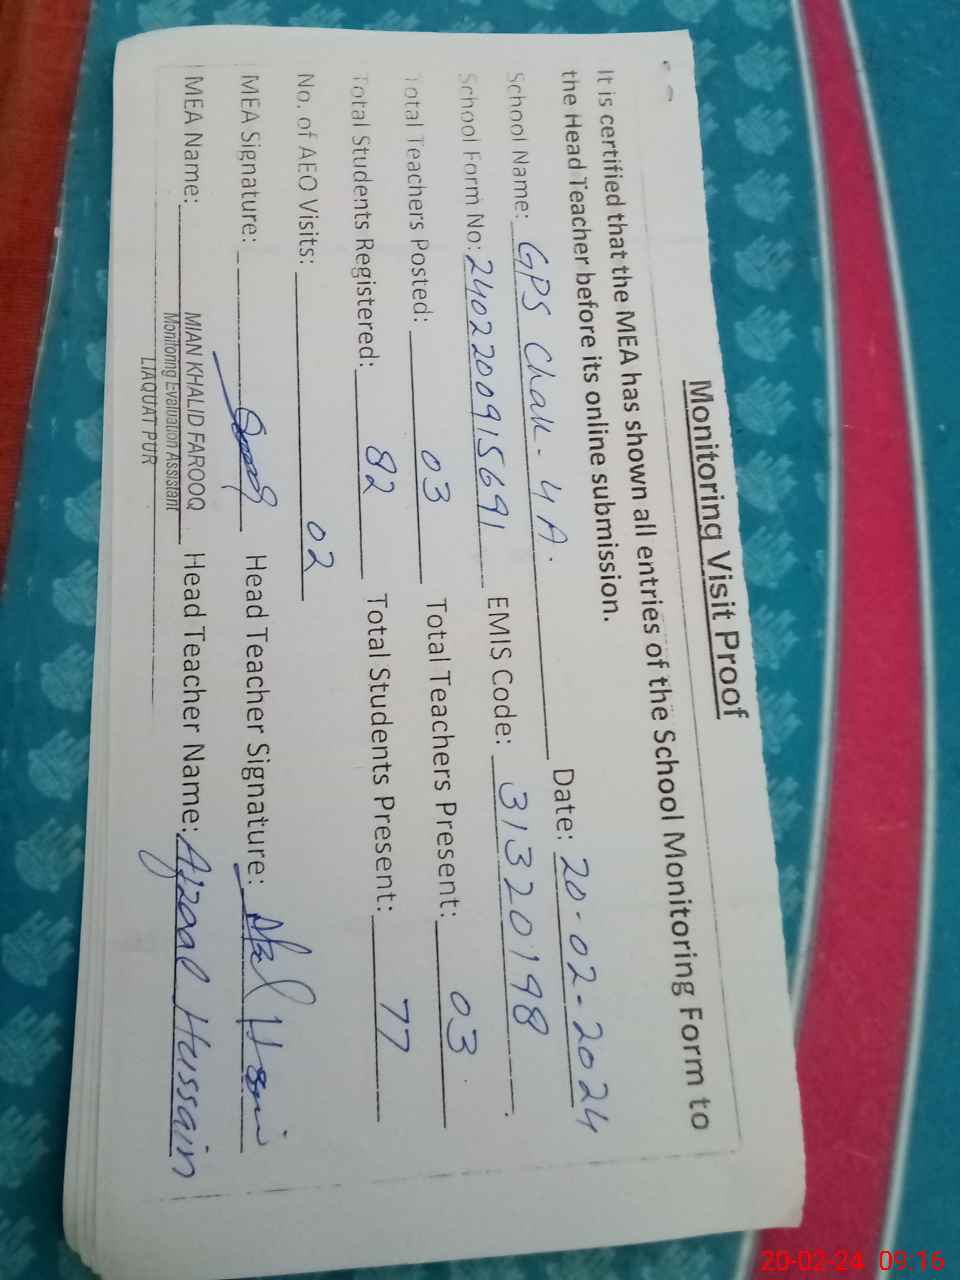 Monitoring Visit Proof
It is certified that the MEA has shown all entries of the School Monitoring Form to
the Head Teacher before its online submission.
Date: 20-02-2024
School Name: GPS Chak-4A.
School Form No: 2402200915691 EMIS Code: 31320198
Total Teachers Posted: 03 Total Teachers Present: 03
Total Students Registered: 82 Total Students Present: 77
No. of AEO Visits: 02
MEA Signature: Head Teacher Signature:
MEA Name: MIAN KHALID FAROOQ Head Teacher Name: Afzaal Hussain
Monitoring Evaluation Assistant
LIAQUAT PUR
20-02-24 09:16